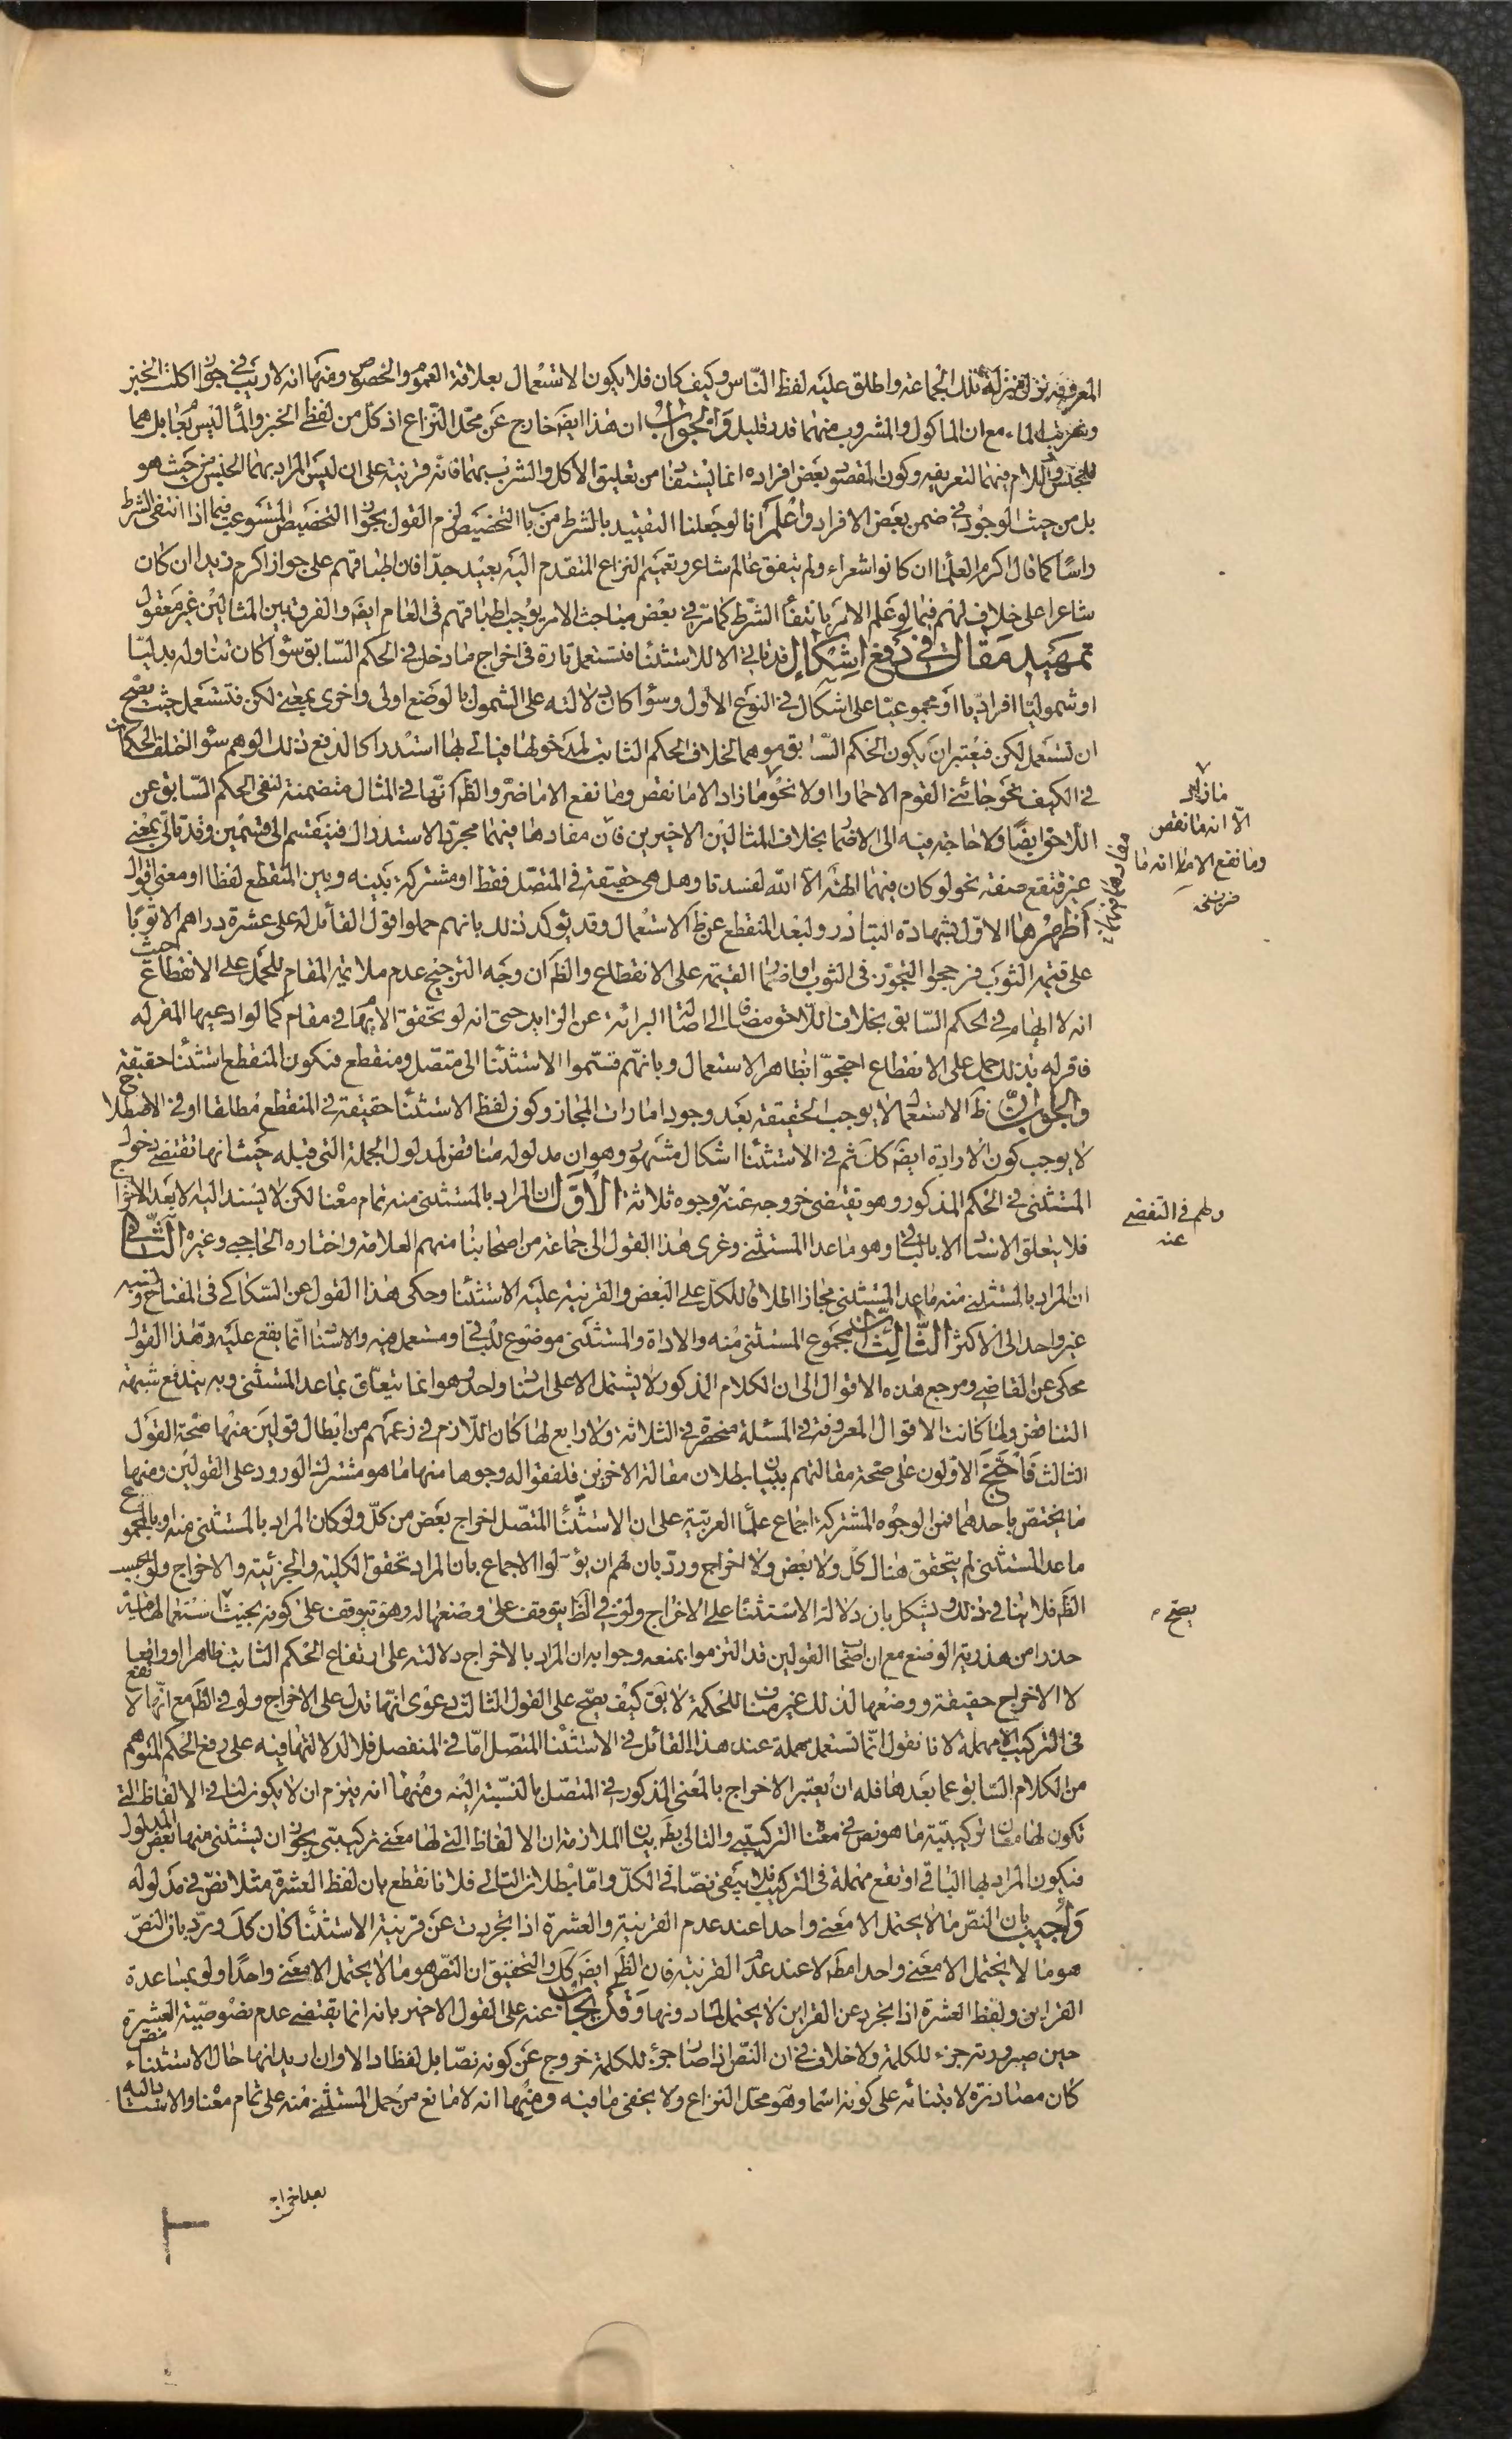 المعرفة نزل منزلة تلك الجماعة واطلق عليه لفظ النّاس وكيف كان فلا يكون الاستعمال بعلاقة العموم والخصوص ومنها انه لا ريب في جواز اكلت الخبز
وشربت الماء مع ان الماكول والمشروب منهما قدر قليل والجواب ان هذا ايضَ خارج عن محلّ النّزاع اذ كلّ من لفظي الخبز والماء ليس بعام بل هما
للجنس واللام فيهما لتعريفه وكون المقصود بعض افراده انما يستفاد من تعليق الاكل والشرب بهما فانّه قرينة على ان ليس المراد بهما الجنس من حيث هو
بل من حيث الوجود في ضمن بعض الافراد واعلم انا لو جعلنا التقييد بالشرط من باب التخصيص لزم القول بجواز التخصيص المستوعب فيما اذا انتفى الشرط
راسًا كما قال اكرم العلماء ان كانوا شعراء ولم يتفق عالم شاعر وتعميم النزاع المتقدم اليه بعيد جدّا فان اطباقهم على جواز اكرم زيدا ان كان
شاعرا على خلاف لهم فيما لو علم الامر بانتفاء الشرط كما مرّ في بعض مباحث الامر يوجب اطباقهم في العام ايضَ والفرق بين المثالين غير معقول
تمهيد مقال في دفع اشكال قد تاتي الا للاستثناء فتستعمل تارة في اخراج ما دخل في الحكم السّابق سواء كان تناوله بدليّا
او شموليّا افراديا او مجموعيّا على اشكال في النوع الاول وسواء كان دلالته على الشمول بالوضع اولى واخرى بمعنى لكن فتستعمل حيث يصحّ
ان تستعمل لكن فيعتبر ان يكون الحكم السّابق موهما لخلاف الحكم الثابت لمدخولها فياتي بها استدراكا لدفع ذلك الوهم سواء اختلف الحكمان
في الكيف نحو جائني القوم الا حمارا او لا نحو ما زاد الا ما نقص وما نفع الا ما ضرّ والظَ انّها في المثال متضمنة لنفي الحكم السّابق عن
اللّاحق ايضًا ولا حاجة فيه الى الاضمار بخلاف المثالين الاخيرين فان مفادها فيهما مجرّد الاستدراك فينقسم الى قسمين وقد تاتي بمعنى
غير فتقع صفة نحو لو كان فيهما الهة الا الله لفسدتا وهل هي حقيقة في المتصل فقط او مشتركة بينه وبين المنقطع لفظا او معنى اقوال
اظهرها الاوّل بشهادة التبادر ولبعد المنقطع عن ظَ الاستعمال وقد يؤكد ذلك بانهم حملوا قول القائل له على عشرة دراهم الا ثوبا
على قيمة الثوب فرجحوا التجوّز في الثوب او اضمار القيمة على الانقطاع والظَ ان وجه الترجيح عدم ملائمة المقام للحمل على الانقطاع حيث
انه لا ايهام في الحكم السّابق بخلاف اللّاحق مضافا الى اصالة البرائة عن الزايد حتى انه لو تحقق الايهام في مقام كما لو ادعيها المقر له
فاقر له بذلك حمل على الانقطاع احتجّوا بظاهر الاستعمال وبانّهم قسّموا الاستثناء الى متصل ومنقطع فيكون المنقطع استثناء حقيقة
والجواب انّ ظَ الاستعمال لا يوجب الحقيقة بعد وجود امارات المجاز وكون لفظ الاستثناء حقيقة في المنقطع مطلقا او في الاصطلاح
لا يوجب كون الاداة ايضَ كلَ ثم في الاستثناء اشكال مشهور وهو ان مدلوله مناقض لمدلول الجملة التي قبله حيث انها تقتضي دخول
المستثنى في الحكم المذكور وهو تقتضي خروجه عنه وجوه ثلاثة الاوّل ان المراد بالمستثنى منه تمام معناه لكن لا يسند اليه الا بعد الاخراج
فلا يتعلق الاسناد الا بالباقي وهو ما عدا المستثنى وعزى هذا القول الى جماعة من اصحابنا منهم العلامة واختاره الحاجبي وغيره الثّاني
ان المراد بالمستثنى منه ما عدا المستثنى مجازا اطلاقا للكل على البعض والقرينة عليه الاستثناء وحكى هذا القول عن السّكاكي في المفتاح ونسبه
غير واحد الى الاكثر الثّالث ان مجموع المستثنى منه والاداة والمستثنى موضوع للباقي ومستعمل فيه والاسناد انّما يقع عليه وهذا القول
محكى عن القاضي ومرجع هذه الاقوال الى ان الكلام المذكور لا يشتمل الا على اسناد واحد وهو انما يتعلّق بما عدا المستثنى وبه يندفع شبهة
التناقض ولما كانت الاقوال المعروفة في المسئلة منحصرة في الثلاثة ولا رابع لها كان اللّازم في زعمهم من ابطال قولين منها صحّة القول
الثالث فاحتجّ الاوّلون على صحّة مقالتهم ببيان بطلان مقالة الاخرين فلفقوا له وجوها منها ما هو مشترك الورود على القولين ومنها
ما يختص باحدهما فمن الوجوه المشتركة اجماع علماء العربيّة على ان الاستثناء المتصل اخراج بعض من كلّ ولو كان المراد بالمستثنى منه او بالمجموع
ما عدا المستثنى لم يتحقق هناك كل ولا بعض ولا اخراج وردّ بان لهم ان يؤوّلوا الاجماع بان المراد تحقق الكلية والجزئية والاخراج ولو بحسب
الظَ فلا ينافي ذلك ويشكل بان دلالة الاستثناء على الاخراج ولو في الظَ يتوقف على وضعها له وهو يتوقف على كونه بحيث استعمالها فيه
حذرا من هذرية الوضع مع ان اصحاب القولين قد التزموا بمنعه وجوابه ان المراد بالاخراج دلالته على ارتفاع الحكم الثابت ظاهرا او واقعا
لا الاخراج حقيقة ووضعها لذلك غير مناف للحكمة لا يقَ كيف يصحّ على القول الثالث دعوى انّها تدل على الاخراج ولو في الظَ مع انّها لا تقع
في التركيب الا مهملة لانا نقول انّما تستعمل مهملة عند هذا القائل في الاستثناء المتصل امّا في المنفصل فلا لدلالتها فيه على رفع الحكم المتوهم
من الكلام السّابق عما بعدها فله ان يعتبر الاخراج بالمعنى المذكور في المتصل بالنسبة اليه ومنها انه يلزم ان لا يكون لنا في الالفاظ التي
تكون لها معان تركيبيّة ما هو نص في معناه التركيبي والتالي بطَ بيان الملازمة ان الالفاظ التي لها معنى تركيبي يجوز ان يستثنى منها بعض المدلول
فيكون المراد بها الباقي او تقع مهملة في التركيب فلا يبقى نصّا في الكلّ وامّا بطلان التالي فلانا نقطع بان لفظ العشرة مثلا نصّ في مدلوله
واجيب بان النصّ ما لا يحتمل الا معنى واحدا عند عدم القرينة والعشرة اذا تجردت عن قرينة الاستثناء كان كلَ وردّ بان النصّ
هو ما لا يحتمل الا معنى واحدا مطَ لا عند عدم القرينة فان الظَ ايضَ كلَ والتحقيق ان النصّ هو ما لا يحتمل الا معنى واحدًا ولو بمساعدة
القراين ولفظ العشرة اذا تجرد عن القراين لا يحتمل لما دونها وقد يجاب عنه على القول الاخير بانه انما يقتضي عدم نصوصيّة العشرة
حين صيرورته جزء للكلمة ولا خلاف في ان النصّ اذا صار جزء للكلمة خروج عن كونه نصّا بل لفظا دالا وان اريد انها حال الاستثناء نصّ
كان مصادرة لابتنائه على كونه اسما وهو محلّ النزاع ولا يخفى ما فيه ومنها انه لا مانع من حمل المستثنى منه على تمام معناه والاسناد اليه
ما زاد
الّا انه ما نقص
وما نفع الا انه ما
ضرّ
ولهم في التفصّي
عنه
يصحّ
بعد اخراج